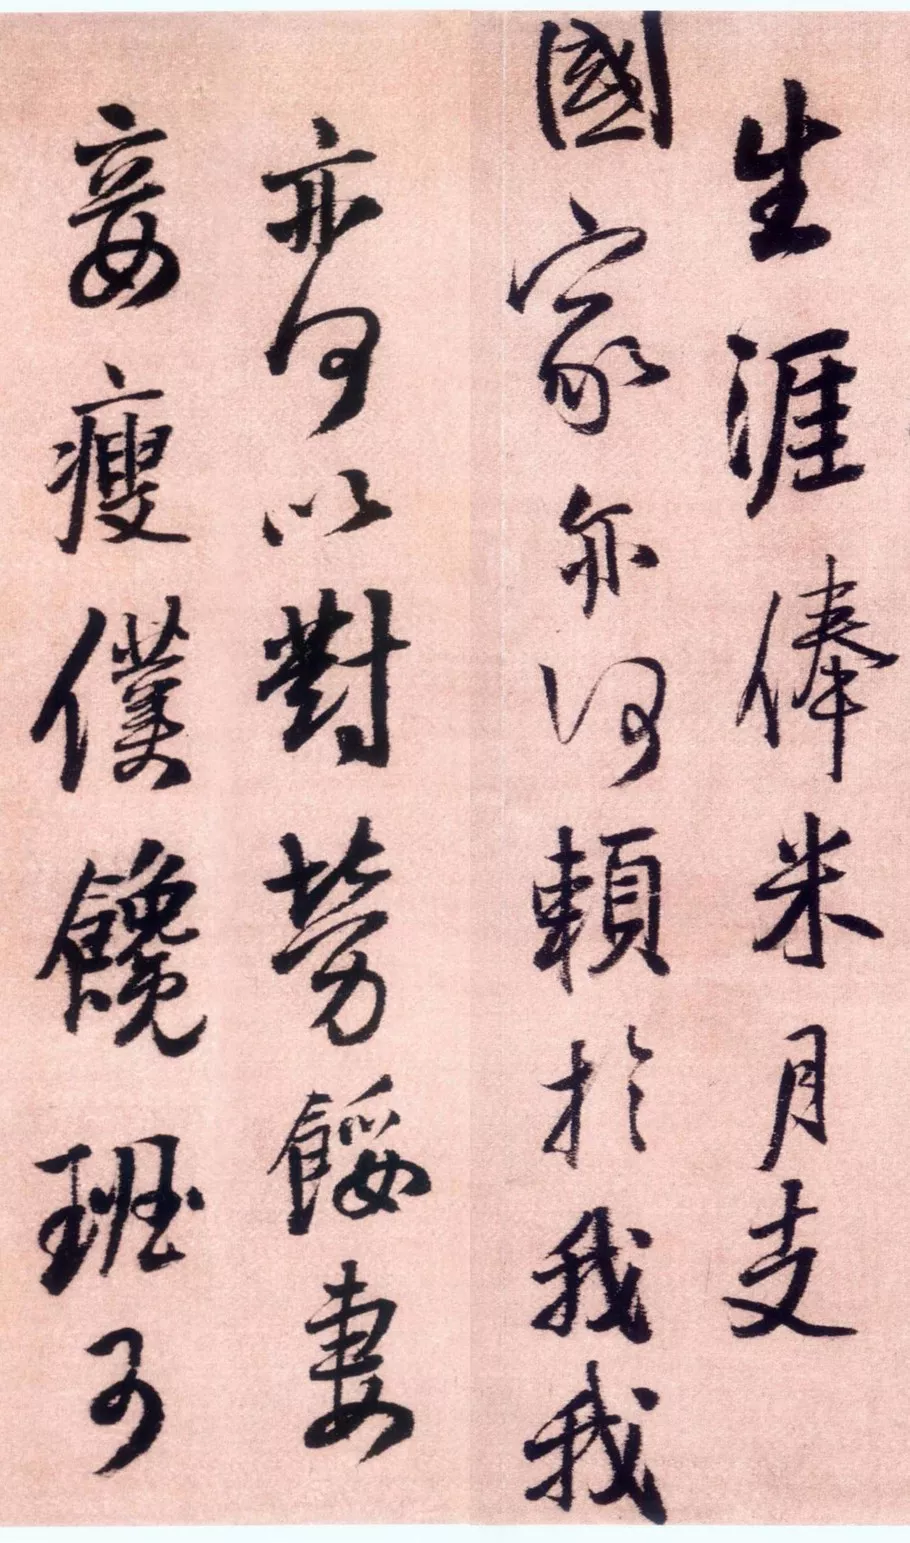 生涯俸米月支
國家亦何賴於我我
亦何以對勞餒妻
妾瘦僕饞班可